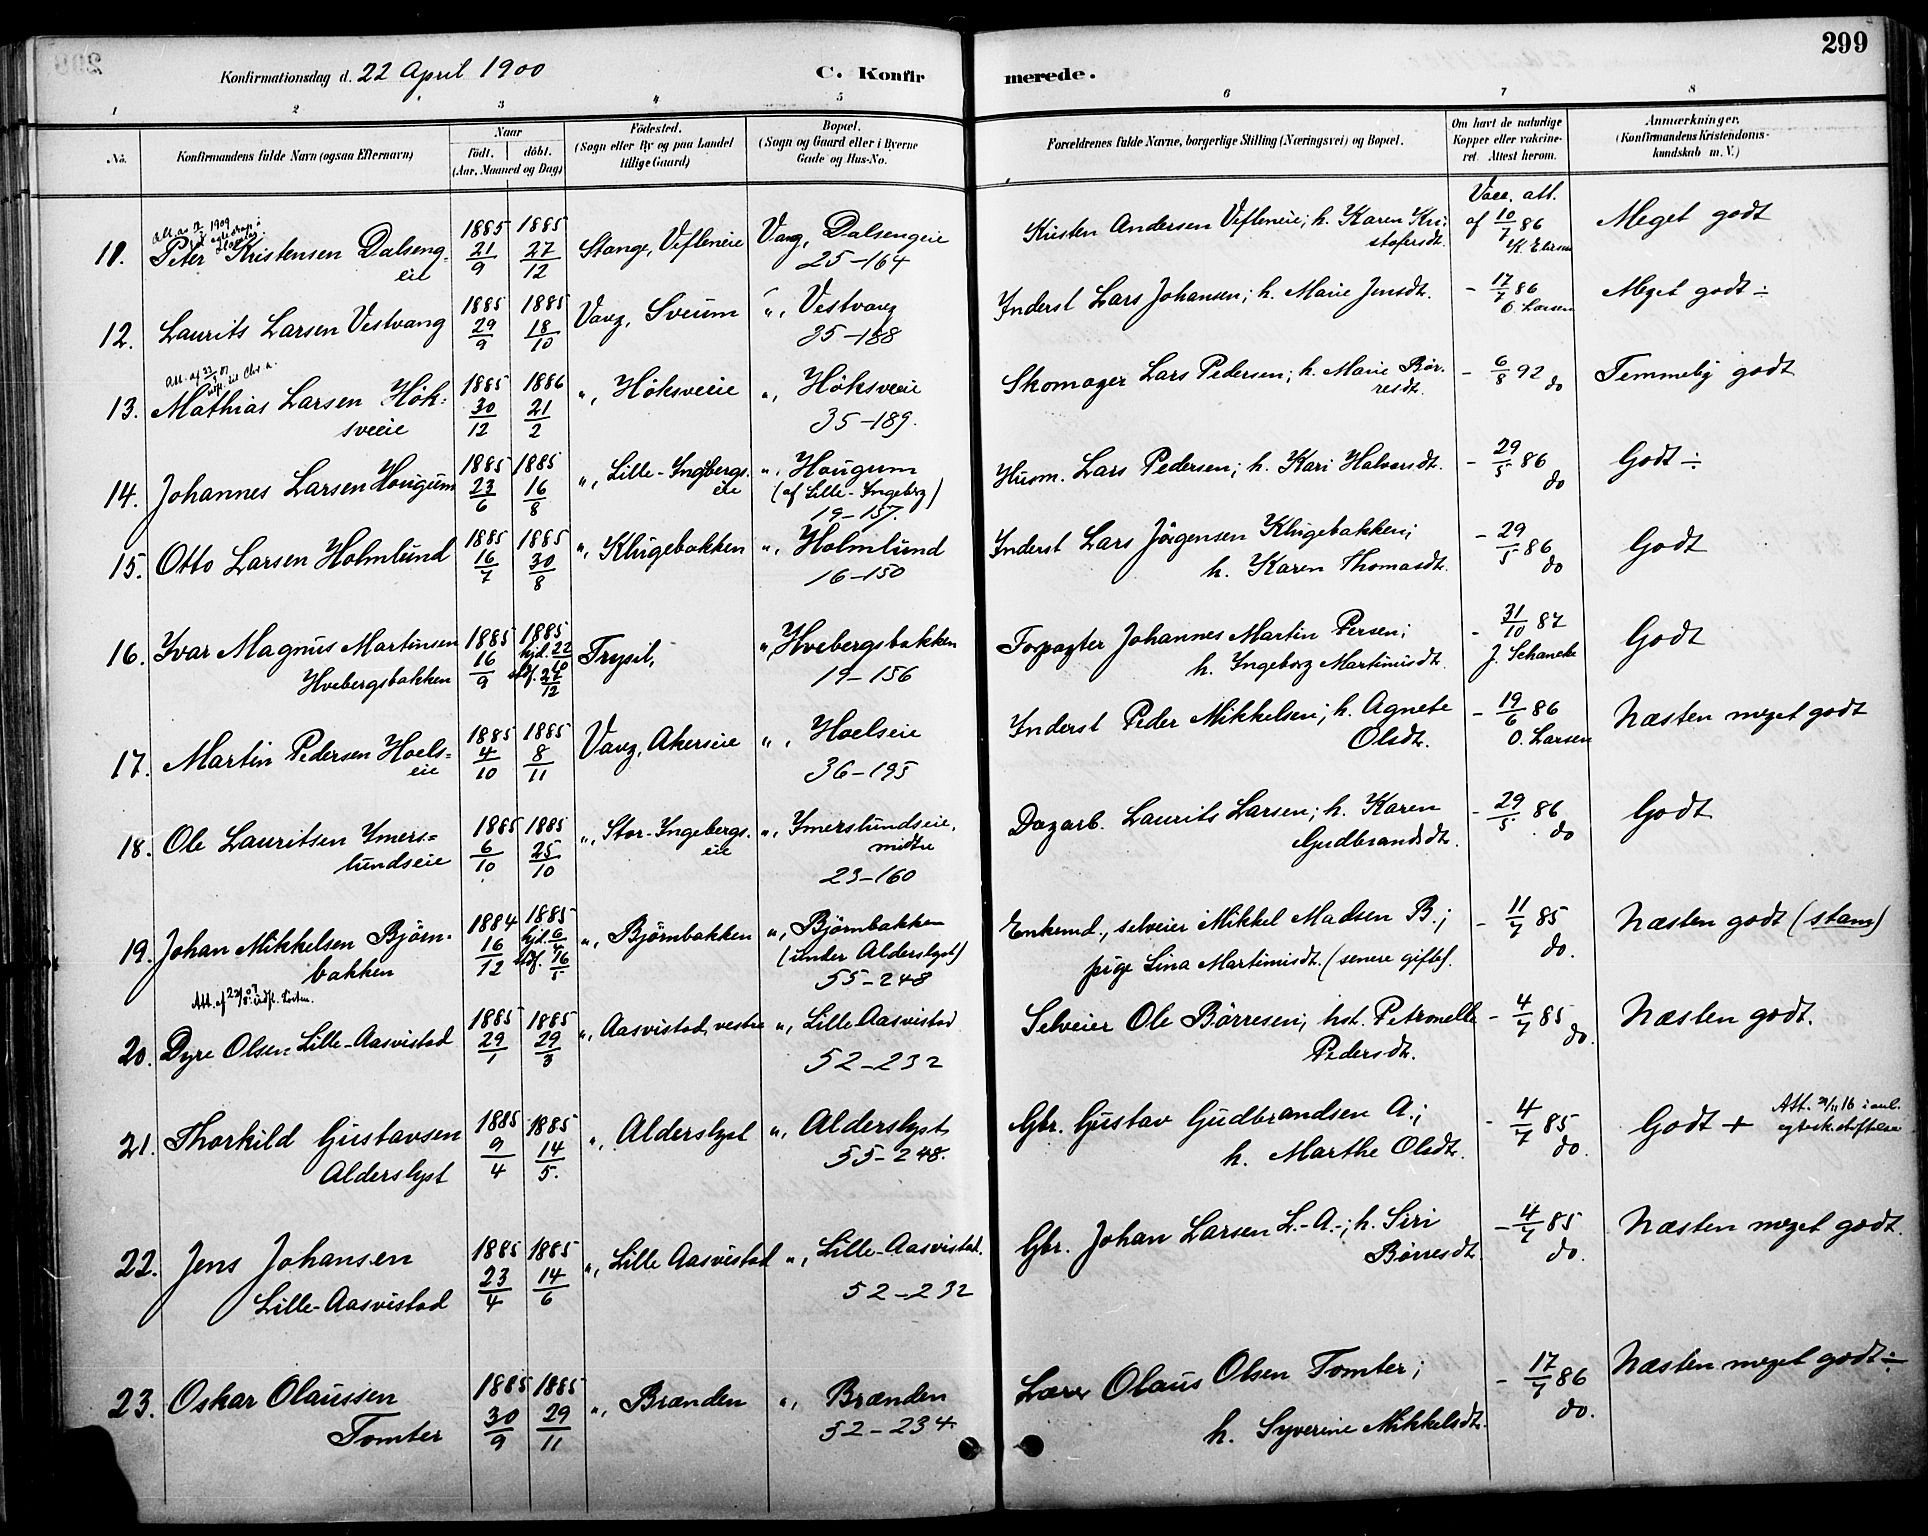 299
Konfirmationsdag d. 22 April 1900
C. Konfirmerede.
1 2 3 4 5 6 7 8
No. Konfirmandens fulde Navn (ogsaa Efternavn) Naar Födt. döbt. (Aar, Maaned og Dag) Födested. (Sogn eller By og paa Landet tillige Gaard) Bopæl. (Sogn og Gaard eller i Byerne Gade og Hus-No. Forældrenes fulde Navne, borgerlige Stilling (Næringsvei) og Bopæl. Om havt de naturlige Kopper eller vakcineret. Attest herom. Anmærkninger. (Konfirmandens Kristendomskundskab m. V.)
11. Peter Kristensen Dalsengeie 1885 21/9 1885 27/12 Stange, Vefleneie Vang, Dalsengeie 25-164 Kristen Andersen Vefleneie; h. Karen Kristofersdt. Vacc. att. af 10/7 86 Meget godt
12. Laurits Larsen Vestvang 1885 29/9 1885 18/10 Vang, Sveum ", Vestvang 35-188 Inderst Lars Johansen; h. Marie Jensdt. - 17/7 86 O. Larsen Meget godt ÷
13. Mathias Larsen Höksveeie 1885 30/12 1886 21/2 ", Höksveeie ", Höksveeie 35-189. Skomager Lars Pedersen; h. Marie Börresdt. - 6/8 92 do Temmelig godt
14. Johannes Larsen Hougum 1885 23/6 1885 16/8 ", Lille-Ingebergseie ", Hougum (af Lille-Ingeberg) 19-157. Husm. Lars Pedersen; h. Kari Halvorsdt. - 29/5 86 do Godt ÷
15. Otto Larsen Holmlund 1885 16/7 1885 30/8 ", Klugebakken ", Holmlund 16-150 Inderst Lars Jörgensen Klugebakken; h. Karen Thomasdt. - 29/5 86 do Godt
16. Ivar Magnus Martinsen Hvebergsbakken 1885 16/9 1885 hjd. 22/10 stdf. 27/12 Trysil, ", Hvebergsbakken 19-156 Forpagter Johannes Martin Persen; h. Ingeborg Martinusdt. - 31/10 87 J. Schancke Godt
17. Martin Pedersen Hoelseie 1885 4/10 1885 8/11 Vang, Akerseie ", Hoelseie 36-195 Inderst Peder Mikkelsen; h. Agnete Olsdt. - 19/6 86 O. Larsen Næsten meget godt
18. Ole Lauritsen Ymerslundseie 1885 6/10 1885 25/10 ", Stor-Ingebergseie ", Ymerslundseie, midtre 23-160 Dagarb. Laurits Larsen; h. Karen Gudbrandsdt. - 29/5 86 do Godt
19. Johan Mikkelsen Björnbakken 1884 16/12 1885 hjd. 6/4 ", Björnbakken ", Björnbakken (under Alderslyst) 55-248 Enkemd., selveier Mikkel Madsen B.; pige Lina Martinusdt. (senere gifte). - 11/7 85 do. Næsten godt (stam)
20. Dyre Olsen Lille-Aasvistad 1885 29/1 1885 29/3 ", Aasvistad, vestre ", Lille Aasvistad 52-232 Selveier Ole Börresen; hst. Petronelle Pedersdt. - 4/7 85 do. Næsten godt.
21. Thorkild Gustavsen Alderslyst 1885 9/4 1885 14/5. ", Alderslyst ", Alderslyst 55-248. Gbr. Gustav Gudbrandsen A.; h. Marthe Olsdt. - 4/7 85 do. Godt +
22. Jens Johansen Lille-Aasvistad 1885 23/4 1885 14/6 ", Lille Aasvistad ", Lille-Aasvistad. 52-232 Gbr. Johan Larsen L.-A.-; h. Siri Börresdt. - 4/7 85 do. Næsten meget godt.
23. Oskar Olaussen Tomter 1885 30/9 1885 29/11 ", Brænden ", Brænden 52-234 Lærer Olaus Olsen Tomter; h. Syverine Mikkelsdt. - 17/7 86 do. Næsten meget godt ÷